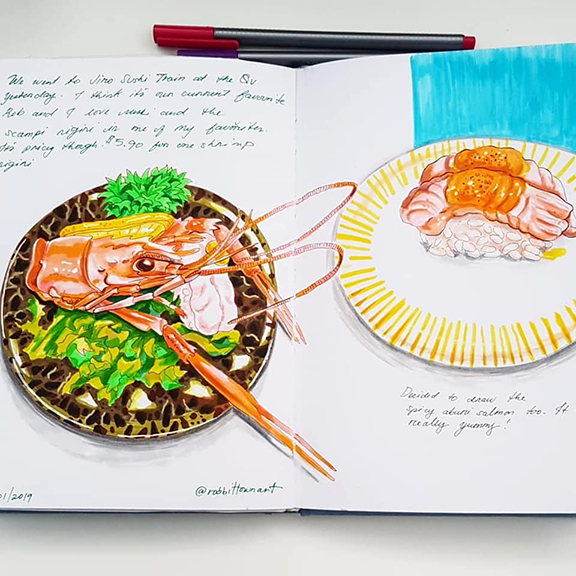 We went to Jiro Sushi Train at the QV
yesterday. I think it's our current favourite
Rob and I love and the
scampi nigiri is one of my favourites.
It's pricy though. $5.90 for one shrimp
nigiri
01/2019
@rabbittownart
Decided to draw the
spicy aburi salmon too. It
really yummy!